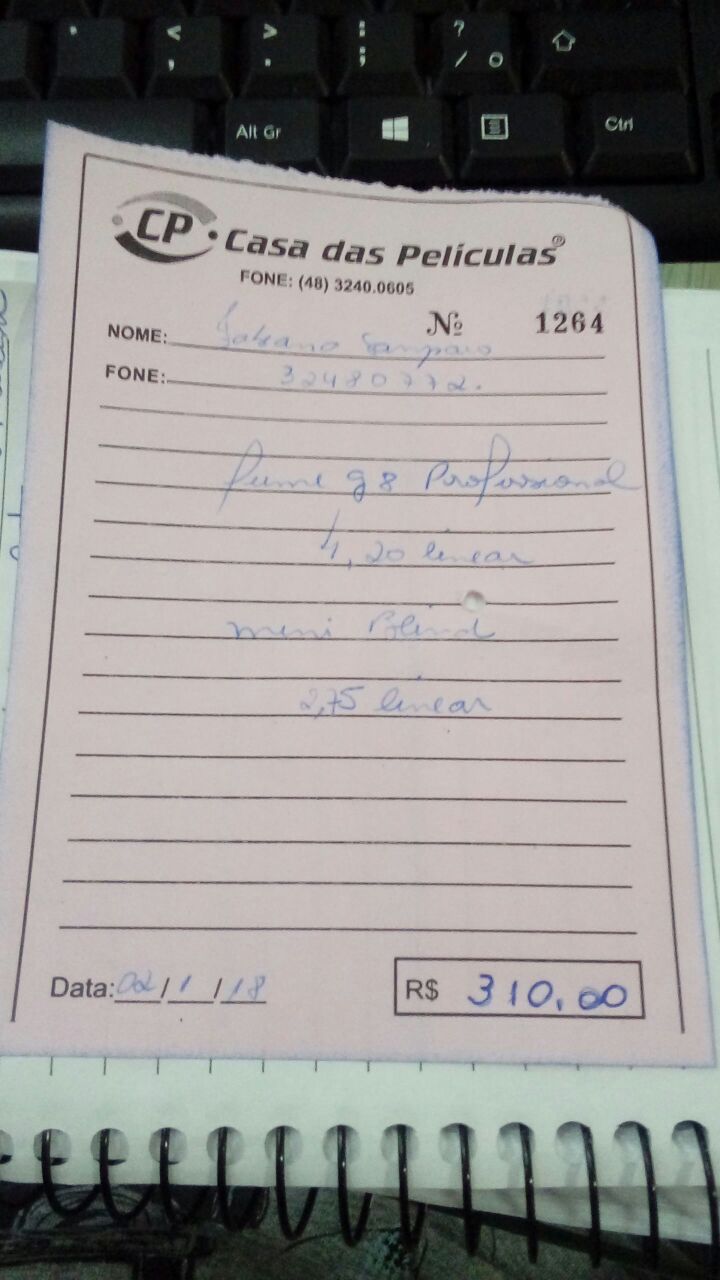 CP. Casa das Películas®
FONE: (48) 3240.0605
Nº 1264
NOME: Fabiano Sampaio
FONE: 32480772.
fume g8 Profissional
4,20 linear
mini Blind
2,75 linear
Data: 02/1/18
R$ 310,00
< ,
> .
: ;
? / °
Alt Gr
Ctrl